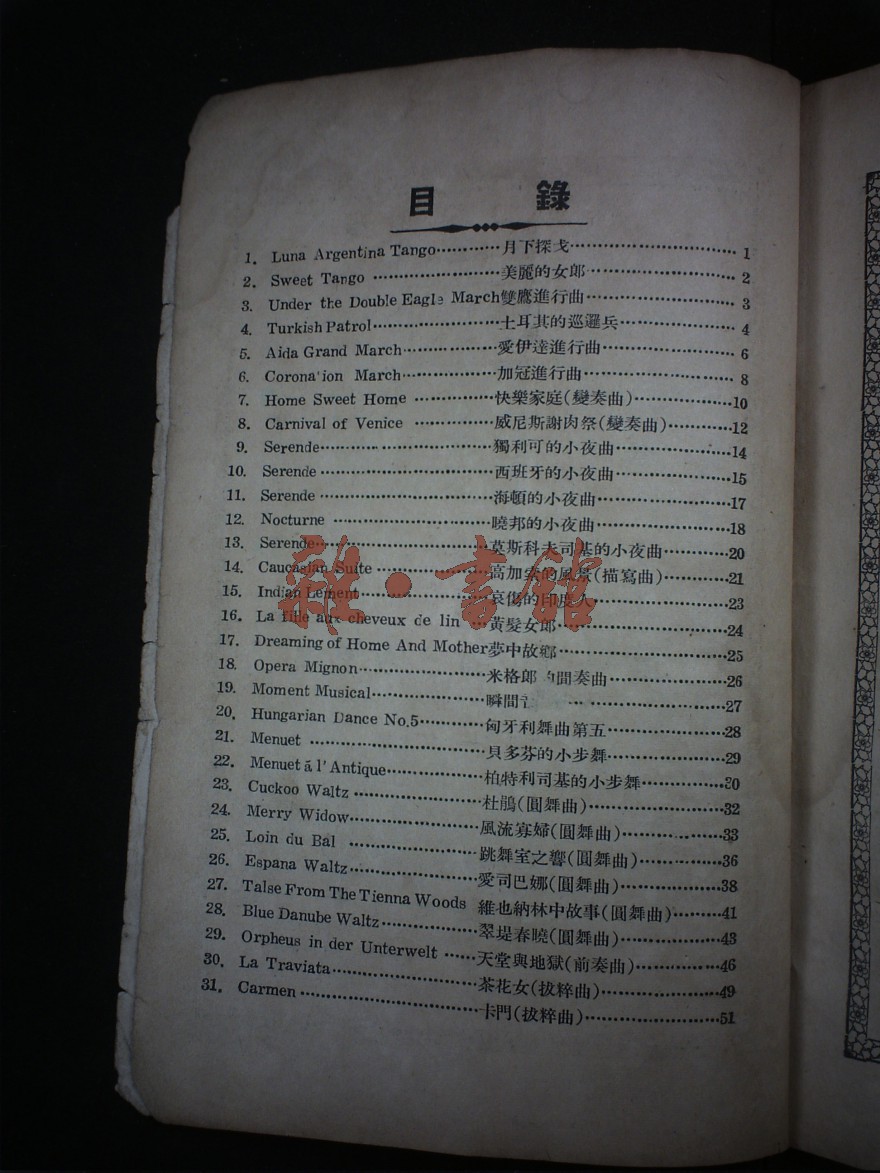 目 錄
1. Luna Argentina Tango············月下探戈································ 1
2. Sweet Tango ························美麗的女郎··························· 2
3. Under the Double Eagle March雙鷹進行曲···························· 3
4. Turkish Patrol························土耳其的巡邏兵······················ 4
5. Aida Grand March··················愛伊達進行曲························· 6
6. Corona'ion March··················加冠進行曲···························· 8
7. Home Sweet Home ···············快樂家庭(變奏曲)···················10
8. Carnival of Venice ···············威尼斯謝肉祭(變奏曲)············12
9. Serende·································獨利可的小夜曲·····················14
10. Serende ·······························西班牙的小夜曲·····················15
11. Serende ·······························海頓的小夜曲························17
12. Nocturne ·····························曉邦的小夜曲························18
13. Serende·······························莫斯科夫司基的小夜曲············20
14. Caucasian Suite ···················高加索的風景(描寫曲)············21
15. Indian Lement······················哀傷的印度人························23
16. La fille aux cheveux de lin ···黃髮女郎······························24
17. Dreaming of Home And Mother夢中故鄉····························25
18. Opera Mignon······················米格郎 間奏曲·····················26
19. Moment Musical···················瞬間 ··························27
20. Hungarian Dance No.5············匈牙利舞曲第五·····················28
21. Menuet ······························貝多芬的小步舞·····················29
22. Menuet à l'Antique···············柏特利司基的小步舞···············30
23. Cuckoo Waltz ·····················杜鵑(圓舞曲)························32
24. Merry Widow·······················風流寡婦(圓舞曲)··················33
25. Loin du Bal ·······················跳舞室之響(圓舞曲)···············36
26. Espana Waltz······················愛司巴娜(圓舞曲)··················38
27. Talse From The Tienna Woods 維也納林中故事(圓舞曲)·········41
28. Blue Danube Waltz···············翠堤春曉(圓舞曲)··················43
29. Orpheus in der Unterwelt ······天堂與地獄(前奏曲)···············46
30. La Traviata·························茶花女(拔粹曲)·····················49
31. Carmen ······························卡門(拔粹曲)························51
雜·書館